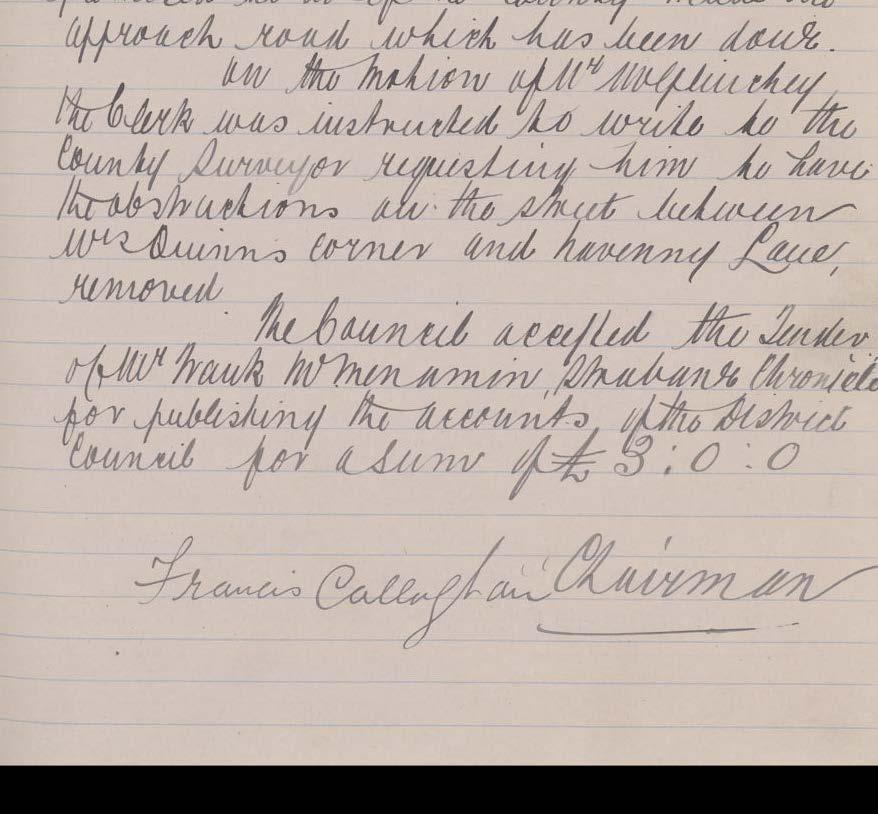 approach road which has been done.
On the Motion of Mr McGlinchey
the Clerk was instructed to write to the
County Surveyor requesting him to have
the obstructions on the street between
Mrs Quinns corner and Kavenny Lane,
removed
The Council accepted the Tender
of Mr Frank McMenamin, Strabane Chronicle
for publishing the accounts of the District
Council for a sum of £3:0:0
Francis Callaghan Chairman